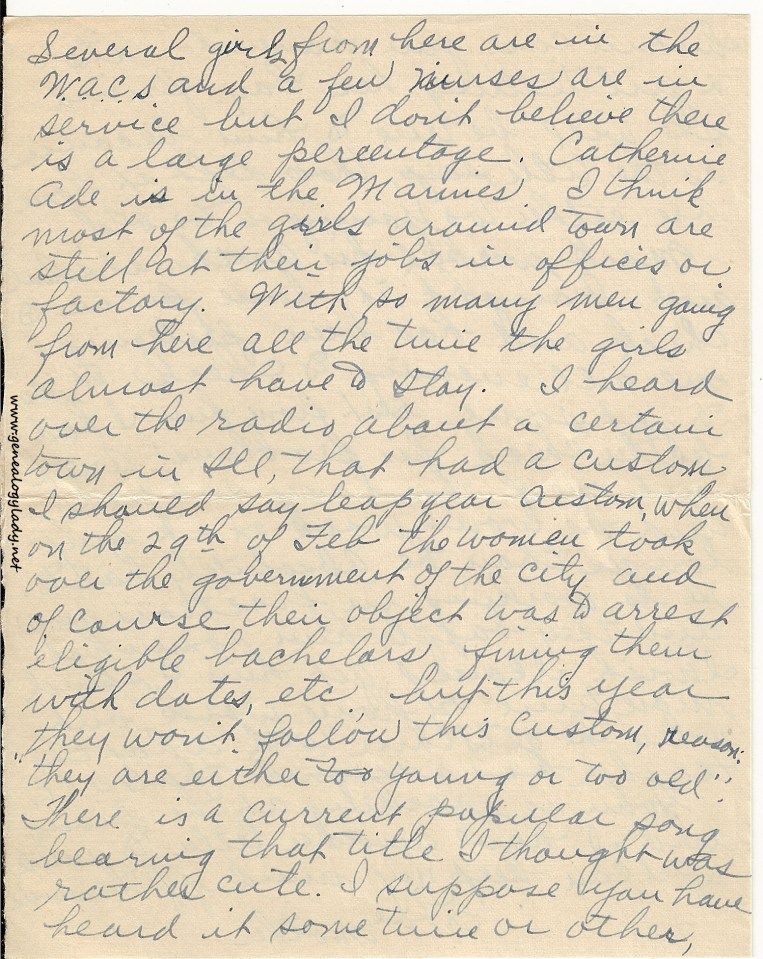 Several girls from here are in the
W.A.C.S and a few nurses are in
service but I don't believe there
is a large percentage. Catherine
Ade is in the Marines. I think
most of the girls around town are
still at their jobs in offices or
factory. With so many men going
from here all the time the girls
almost have to stay. I heard
over the radio about a certain
town in Ill, that had a custom
I should say leap year custom, when
on the 29th of Feb the women took
over the government of the city and
of course their object was to arrest
eligible bachelors fining them
with dates, etc but this year
they won't follow this custom, reason:
"they are either too young or too old".
There is a current popular song
bearing that title I thought was
rather cute. I suppose you have
heard it some time or other,
www.genealogylady.net